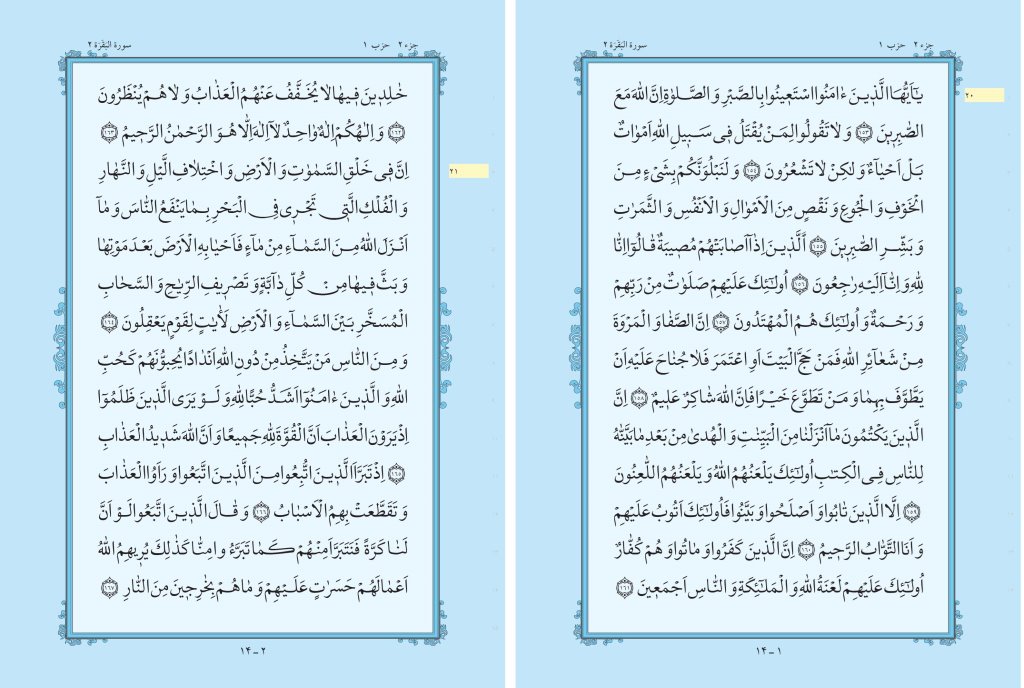 جزء ٢ حزب ١
سورة البقرة ٢
٢٠
يٰٓاَيُّهَا الَّذينَ ءٰامَنُوا اسْتَعينُوا بِالصَّبْرِ وَ الصَّلوٰةِ اِنَّ اللهَ مَعَ
الصّٰبِرينَ ﴿١٥٣﴾ وَ لا تَقُولُوا لِمَنْ يُقْتَلُ فى سَبيلِ اللهِ اَمْوٰاتٌ
بَلْ اَحْيٰٓاءٌ وَ لٰكِنْ لا تَشْعُرُونَ ﴿١٥٤﴾ وَ لَنَبْلُوَنَّكُمْ بِشَىْءٍ مِنَ
الْخَوْفِ وَ الْجُوعِ وَ نَقْصٍ مِنَ الْاَمْوٰالِ وَ الْاَنْفُسِ وَ الثَّمَرٰاتِ
وَ بَشِّرِ الصّٰبِرينَ ﴿١٥٥﴾ اَلَّذينَ اِذٰٓا اَصٰابَتْهُمْ مُصيبَةٌ قٰالُوٓا اِنّٰا
لِلّٰهِ وَ اِنّٰٓا اِلَيْهِ رٰجِعُونَ ﴿١٥٦﴾ اُولٰٓئِكَ عَلَيْهِمْ صَلَوٰتٌ مِنْ رَبِّهِمْ
وَ رَحْمَةٌ وَ اُولٰٓئِكَ هُمُ الْمُهْتَدُونَ ﴿١٥٧﴾ اِنَّ الصَّفٰا وَ الْمَرْوَةَ
مِنْ شَعٰٓائِرِ اللهِ فَمَنْ حَجَّ الْبَيْتَ اَوِ اعْتَمَرَ فَلا جُنٰاحَ عَلَيْهِ اَنْ
يَطَّوَّفَ بِهِمٰا وَ مَنْ تَطَوَّعَ خَيْرًا فَاِنَّ اللهَ شٰاكِرٌ عَليمٌ ﴿١٥٨﴾ اِنَّ
الَّذينَ يَكْتُمُونَ مٰٓا اَنْزَلْنٰا مِنَ الْبَيِّنٰتِ وَ الْهُدىٰ مِنْ بَعْدِ مٰا بَيَّنّٰهُ
لِلنّٰاسِ فِى الْكِتٰبِ اُولٰٓئِكَ يَلْعَنُهُمُ اللهُ وَ يَلْعَنُهُمُ اللّٰعِنُونَ
﴿١٥٩﴾ اِلَّا الَّذينَ تٰابُوا وَ اَصْلَحُوا وَ بَيَّنُوا فَاُولٰٓئِكَ اَتُوبُ عَلَيْهِمْ
وَ اَنَا التَّوّٰابُ الرَّحيمُ ﴿١٦٠﴾ اِنَّ الَّذينَ كَفَرُوا وَ مٰاتُوا وَ هُمْ كُفّٰارٌ
اُولٰٓئِكَ عَلَيْهِمْ لَعْنَةُ اللهِ وَ الْمَلٰٓئِكَةِ وَ النّٰاسِ اَجْمَعينَ ﴿١٦١﴾
١٤ - ١
جزء ٢ حزب ١
سورة البقرة ٢
خٰلِدينَ فيهٰا لا يُخَفَّفُ عَنْهُمُ الْعَذٰابُ وَ لا هُمْ يُنْظَرُونَ
﴿١٦٢﴾ وَ اِلٰهُكُمْ اِلٰهٌ وٰاحِدٌ لآ اِلٰهَ اِلّٰا هُوَ الرَّحْمٰنُ الرَّحيمُ ﴿١٦٣﴾
٢١
اِنَّ فى خَلْقِ السَّمٰوٰتِ وَ الْاَرْضِ وَ اخْتِلافِ الَّيْلِ وَ النَّهٰارِ
وَ الْفُلْكِ الَّتى تَجْرى فِى الْبَحْرِ بِمٰا يَنْفَعُ النّٰاسَ وَ مٰٓا
اَنْزَلَ اللهُ مِنَ السَّمٰٓاءِ مِنْ مٰٓاءٍ فَاَحْيٰا بِهِ الْاَرْضَ بَعْدَ مَوْتِهٰا
وَ بَثَّ فيهٰا مِنْ كُلِّ دٰٓابَّةٍ وَ تَصْريفِ الرِّيٰحِ وَ السَّحٰابِ
الْمُسَخَّرِ بَيْنَ السَّمٰٓاءِ وَ الْاَرْضِ لَاٰيٰتٍ لِقَوْمٍ يَعْقِلُونَ ﴿١٦٤﴾
وَ مِنَ النّٰاسِ مَنْ يَتَّخِذُ مِنْ دُونِ اللهِ اَنْدٰادًا يُحِبُّونَهُمْ كَحُبِّ
اللهِ وَ الَّذينَ ءٰامَنُوٓا اَشَدُّ حُبًّا لِلّٰهِ وَ لَوْ يَرَى الَّذينَ ظَلَمُوٓا
اِذْ يَرَوْنَ الْعَذٰابَ اَنَّ الْقُوَّةَ لِلّٰهِ جَميعًا وَ اَنَّ اللهَ شَديدُ الْعَذٰابِ
﴿١٦٥﴾ اِذْ تَبَرَّاَ الَّذينَ اتُّبِعُوا مِنَ الَّذينَ اتَّبَعُوا وَ رَاَوُا الْعَذٰابَ
وَ تَقَطَّعَتْ بِهِمُ الْاَسْبٰابُ ﴿١٦٦﴾ وَ قٰالَ الَّذينَ اتَّبَعُوا لَوْ اَنَّ
لَنٰا كَرَّةً فَنَتَبَرَّاَ مِنْهُمْ كَمٰا تَبَرَّءُوا مِنّٰا كَذٰلِكَ يُريهِمُ اللهُ
اَعْمٰالَهُمْ حَسَرٰتٍ عَلَيْهِمْ وَ مٰا هُمْ بِخٰرِجينَ مِنَ النّٰارِ ﴿١٦٧﴾
١٤ - ٢